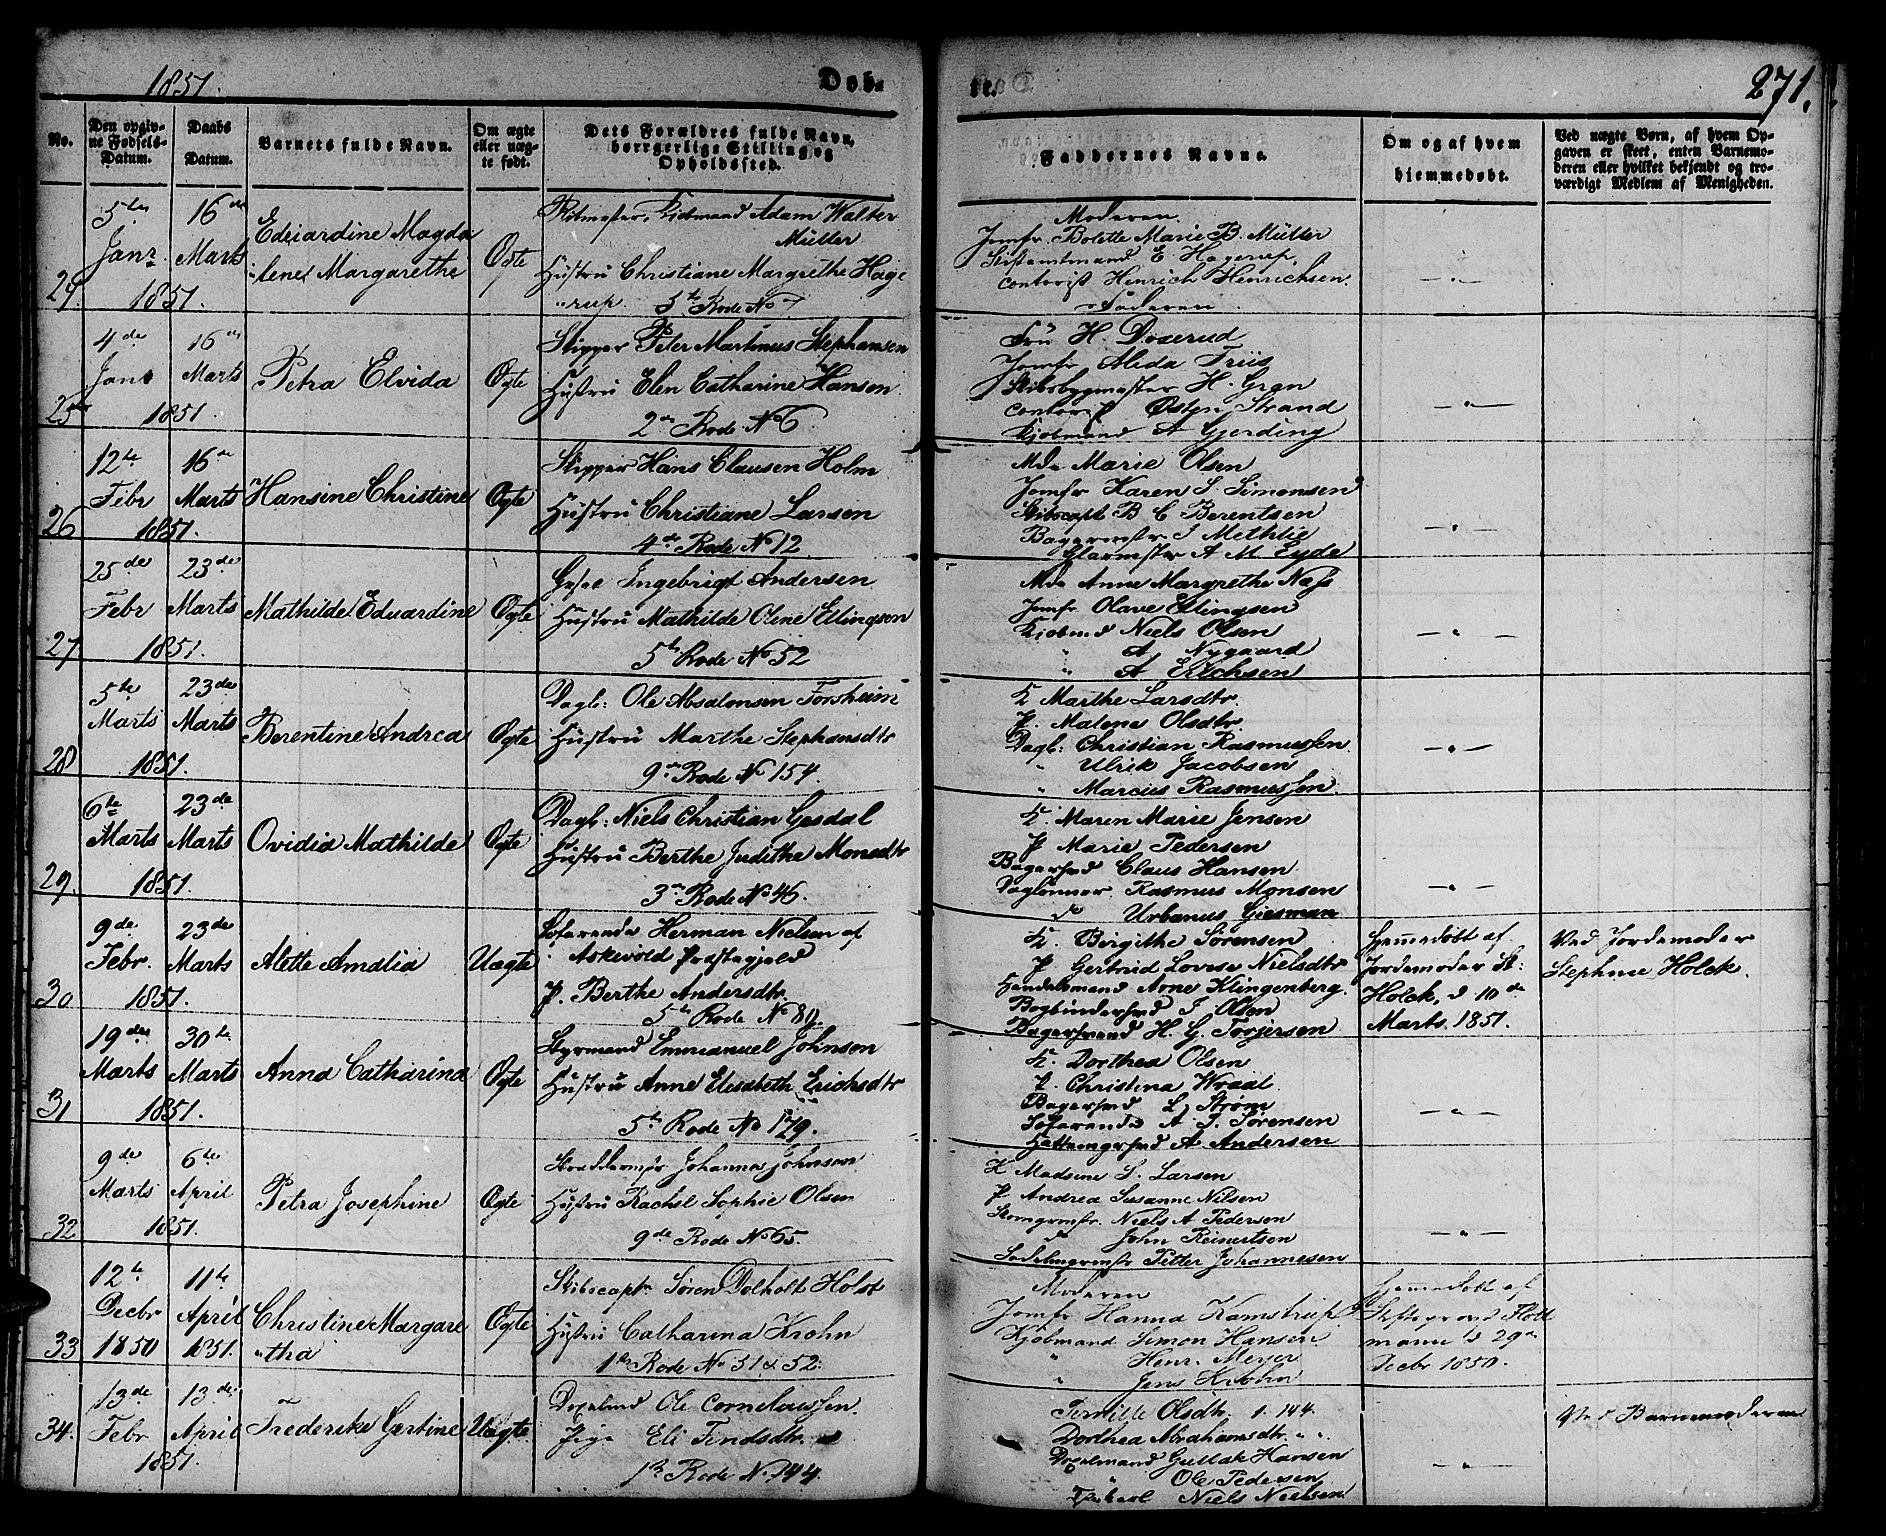 1851.
Døb-
te.
271.
No.
Den opgiv-
ne Fødsels-
Datum.
Daabs
Datum.
Barnets fulde Navn.
Om ægte
eller uæg-
te født.
Dets Forældres fulde Navn,
borgerlige Stilling og
Opholdssted.
Faddernes Navne.
Om og af hvem
hjemmedøbt.
Ved uægte Børn, af hvem Op-
gaven er skeet, enten Barnemo-
deren eller hvilket bekjendt og tro-
værdigt Medlem af Menigheden.
5te
Janr
1851.
16de
Marts
Eduardine Magda
lene Margarethe
Ægte
Adam Walter
Müller
Hustru Christiane Margrethe Hage
rup. 5te Rode No 7
Moderen
Jomfr. Bolette Marie B. Müller
Stiftamtmand E. Hagerup.
Contorist Henrich Henrichsen
Faderen
25
4de
Janr
1851.
16de
Marts
Petra Elvida
Ægte
Skipper Peter Martinus Stephansen
Hustru Elen Catharine Hansen
2den Rode No 6
Fru H.
Jomfr Alida Friis
Skibsbygmester H. Gran
Contorist Østen Strand
Kjøbmand A Gjerding
26
12te
Febr
1851.
16de
Marts
Hansine Christine
Ægte
Skipper Hans Clausen Holm
Hustru Christiane Larsen
4de Rode No 12
Mde Marie Olsen
Jomfr Karen S. Simonsen
Skibscapt B C Berentsen
Bagermstr J Methlie
Glarmstr A M Eyde
27
25de
Febr
1851.
23de
Marts
Mathilde Eduardine
Ægte
Ingebrigt Andersen
Hustru Mathilde Olene Ellingsen
5te Rode No 52
Mde Anne Margrethe Næss
Jomfr Olave Ellingsen
Kjøbmd Niels Olsen
" A. Nygaard
" A Erichsen
28
5te
Marts
1851.
23de
Marts
Berentine Andrea
Ægte
Dagl: Ole Absalonsen Forsheim
Hustru Marthe Stephansdtr
9de Rode No 154.
K Marthe Larsdtr.
P. Malene Olsdtr
Dagl: Christian Rasmussen
" Ulrik Jacobsen
" Marcus Rasmussen.
29.
6te
Marts
1851.
23de
Marts
Ovidia Mathilde
Ægte
Dagl: Niels Christian Gesdal
Hustru Berthe Juditha Monsdtr
3de Rode No 46.
K. Maren Marie Jensen
P Marie Pedersen
Bagersvd Claus Hansen
Daglønner Rasmus Monsen
do Urbanus Giesman
30
9de
Febr.
1851.
23de
Marts
Alette Amalia
Uægte
Søfarende Herman Nielsen af
Askevold Præstegjeld
P. Berthe Andersdtr
5te Rode No 89.
K. Birgithe Sørensen
P Gertrud Lovise Nielsdtr
Handelsmand Arne Klingenberg.
Bogbindersvd J. Olsen
Bagersvend H. G. Torjersen
Hjemmedøbt af
Jordemoder St:
Holck, d 10de
Marts 1851.
Ved Jordemoder
Stephine Holck.
31
19de
Marts
1851.
30te
Marts
Anna Catharina
Ægte
Styrmand Emmanuel Johnson
Hustru Anne Elisabeth Erichsdtr
5te Rode No 179.
K. Dorthea Olsen
P. Christina Wraal
Bagersvd L. Strøm
Søfarende A S. Sørensen
Hattemgersvd A. Andersen
32
9de
Marts
1851.
6te
April
Petra Josephine
Ægte
Johannes Johnsen
Hustru Rachel Sophie Olsen
9de Rode No 65.
K Madame S. Larsen
P Andrea Susanne Nilsen
Skomgrmstr. Niels A. Pedersen
do John Reinertsen
Sadelmgrmstr Petter Johannesen
33
12te
Decbr
1850
11te
April
1851.
Christine Margare
tha
Ægte
Skibscaptn Søren Dolholt Holst
Hustru Catharina Krohn
1ste Rode No 51 & 52.
Moderen
Jomfr Hanna Kamstrup
Kjøbmand Simon Hansen
" Henr. Meyer
" Jens Krohn
Hjemmedøbt af
mann d 29de
Decbr 1850.
34.
13de
Febr
1851.
13de
April
Frederike Gertine
Uægte
Ole Corneliussen
Pige Eli Findsdtr.
1ste Rode No. 144.
Pernille Olsdtr. 1. 144.
Dorthea Abrahamsdtr. " "
Gullak Hansen
" Ole Pedersen
Niels Nielsen
Ved Barnemoderen